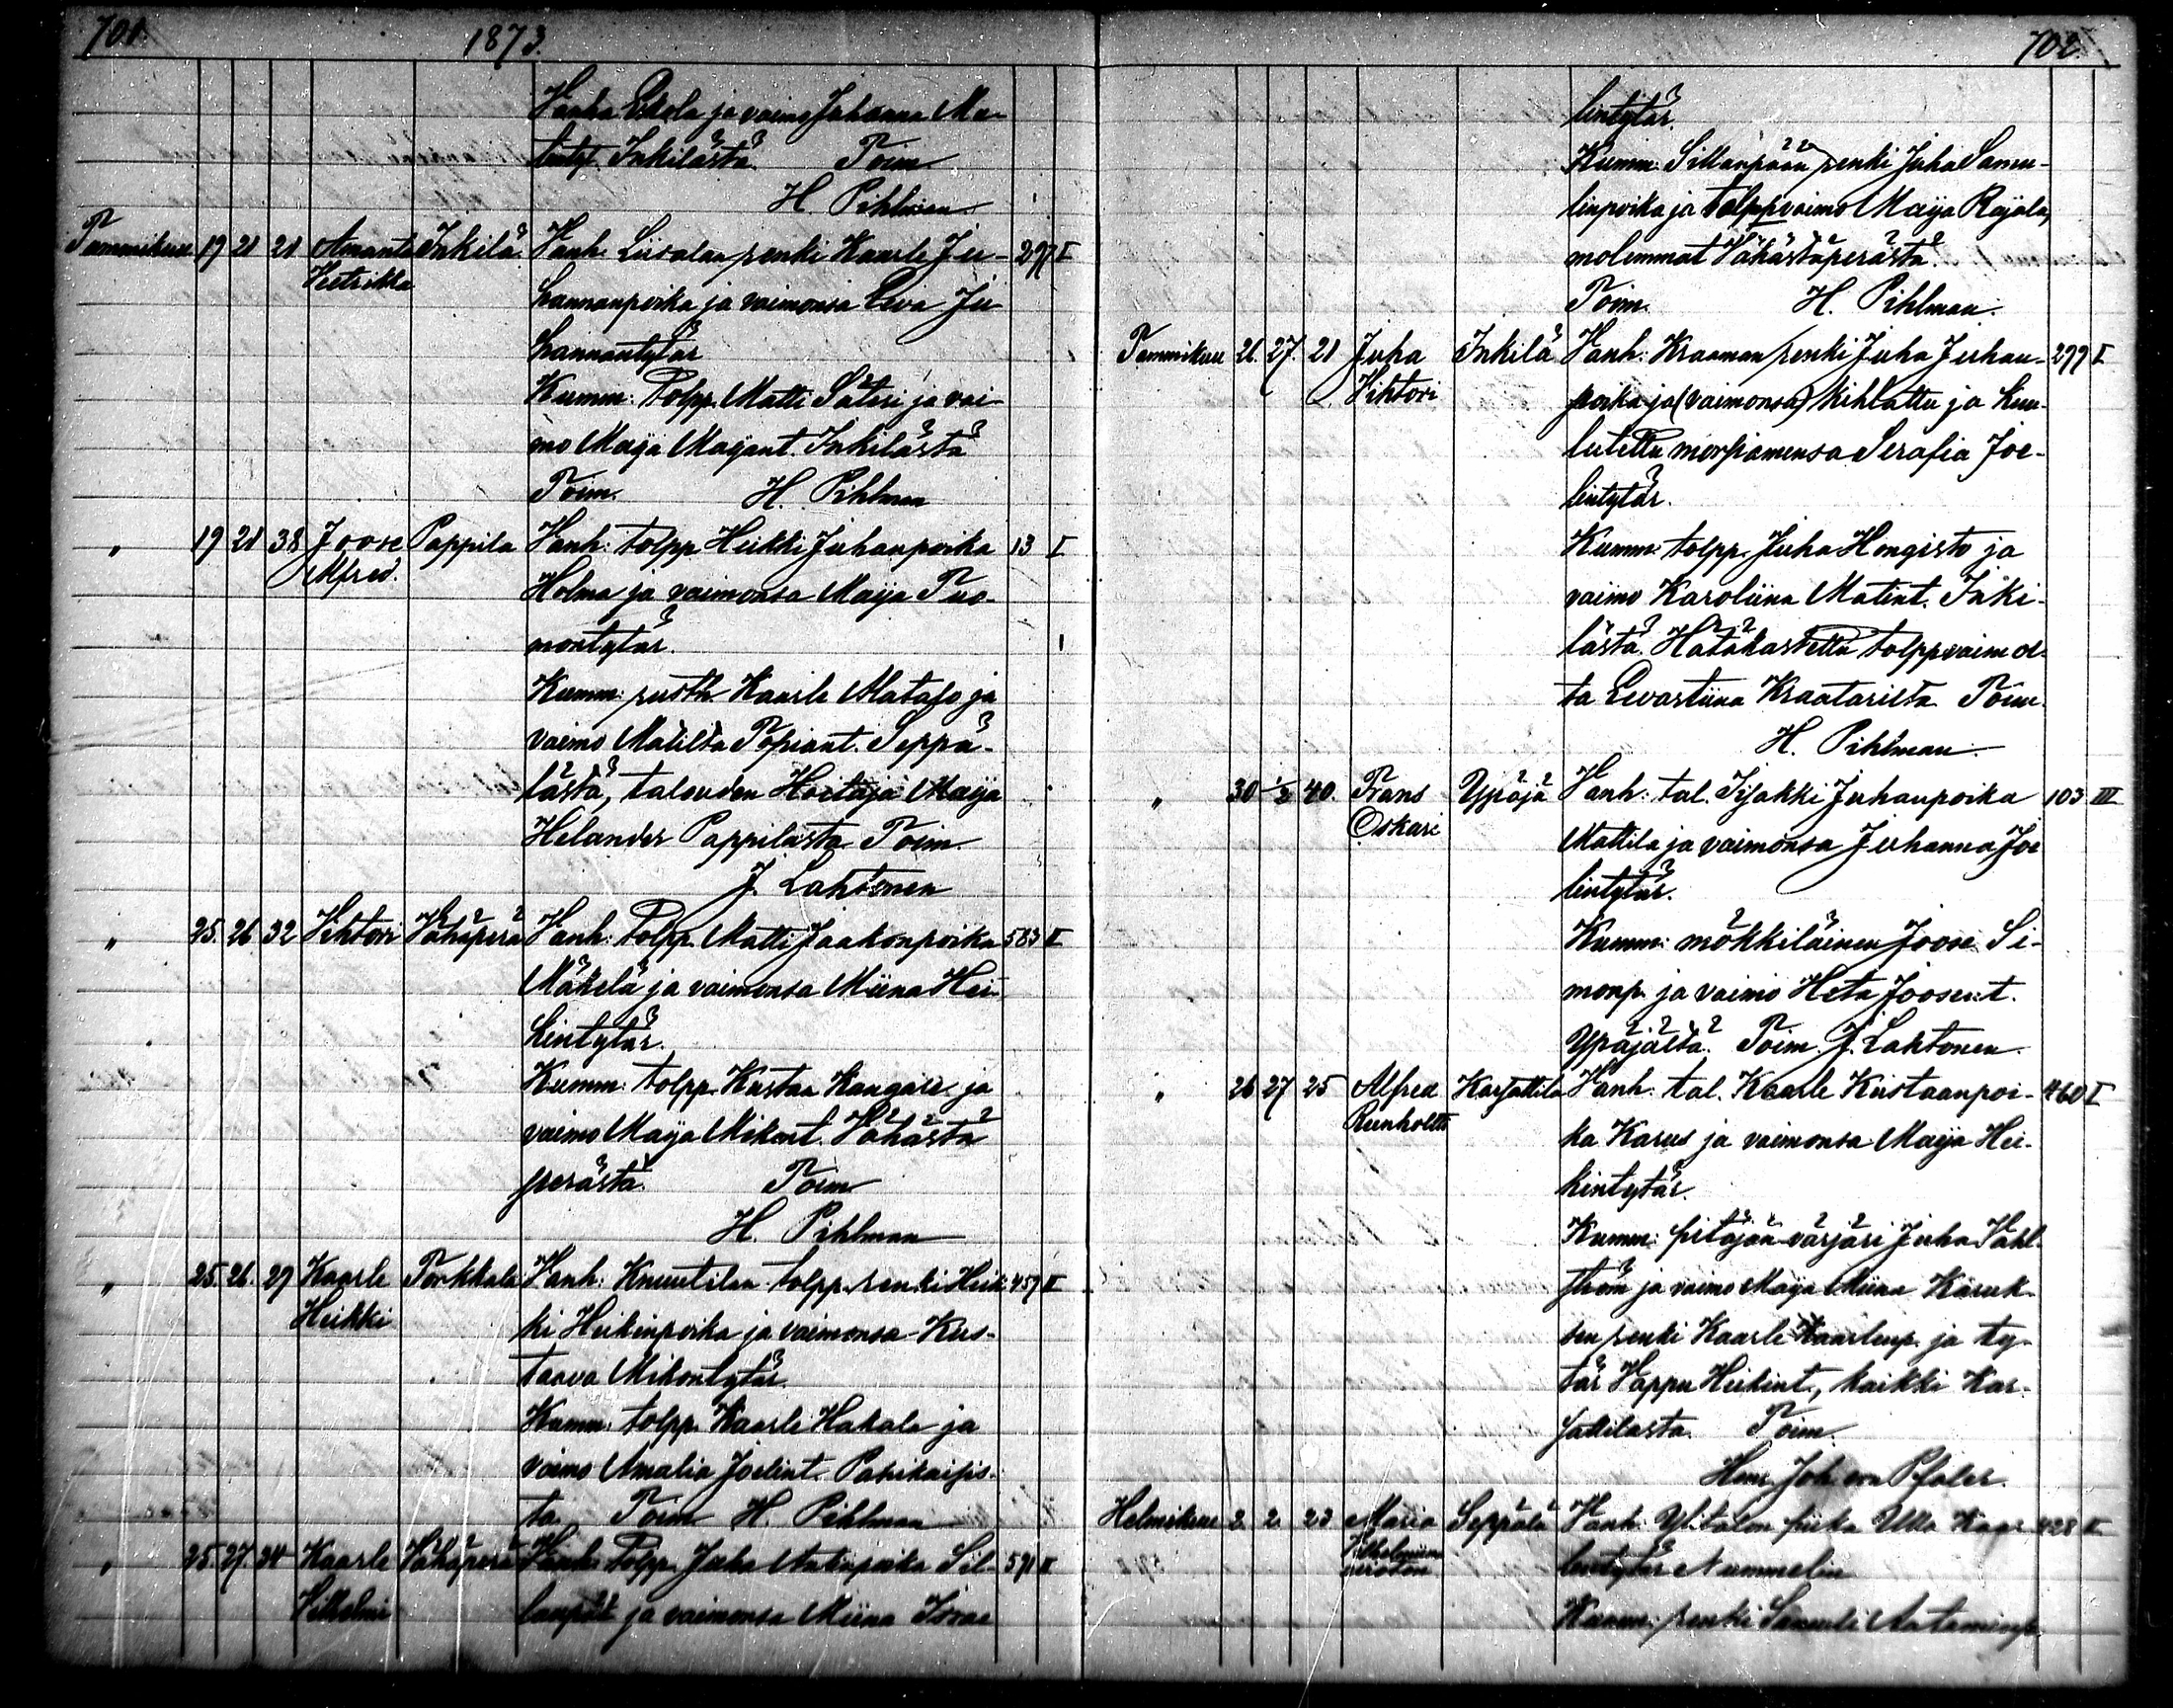 701. 1873.
Vanha Eskola ja vaimo Juhanna Ma-
tintyt. Inkilästä. Toim.
H. Pihlman
Tammikuu 19 21 21 Amanta Inkilä Vanh. Liisalan renki Kaarle Ju- 297 I
Hetrikka hannanpoika ja vaimonsa Eeva Ju
hannantytär
Kumm: Tolpp. Matti Säteri ja vai-
mo Maija Majant. Inkilästä
Toim. H. Pihlman
" 19 21 38 Joose Pappila Vanh: tolpp Heikki Juhanpoika 13 I
Alfred. Holma ja vaimonsa Maija Tuo-
montytär.
Kumm: rusth. Kaarle Matafo ja
vaimo Matilta Topiant. Seppä-
lästä, talouden Hoitaja Maija
Helander Pappilasta Toim.
J. Lahtonen
" 25. 26 32 Vihtori Vähäperä Vanh: Tolpp. Matti Jaakonpoika 583 II
Mäkelä ja vaimonsa Miina Hei-
kintytär.
Kumm: tolpp. Kustaa Kangare ja
vaimo Maija Mikont. Vähästä
perästä. Toim
H. Pihlman
" 25. 26 29 Kaarle Torkkala Vanh: Knuutilan tolpp. renki Heik- 457 II
Heikki ki Heikinpoika ja vaimonsa Kus-
taava Mikontytär.
Kumm: tolpp. Kaarle Hakala ja
vaimo Amalia Joelint. Pahikaisis-
ta Toim H. Pihlman
" 25 27 34 Kaarle Vähäperä Vanh: Tolpp. Juha Antinpoika Sil- 591 II
Vilhelmi lanpää ja vaimonsa Miina Israe
702.
lintytär.
Kumm: Sillanpään renki Juha Samu-
linpoika ja tolppvaimo Maija Rajala,
molemmat Vähästäperästä.
Toim. H. Pihlman.
Tammikuu 26. 27. 21 Juha Inkilä Vanh: Kraaman renki Juha Juhan- 299 I
Vihtori poika ja (vaimonsa) kihlattu ja kuu-
lutettu morsiamensa Serafia Joe-
lintytär.
Kumm: tolpp. Juha Hongisto ja
vaimo Karoliina Matint. Inki-
lästä. Hätäkastettu tolppvaimol-
ta Eevastiina Kraatarilta Toim.
H. Pihlman
" 30 1/2 40. Frans Ypäjä Vanh: tal. Iisakki Juhanpoika 103 III
Oskari Mattila ja vaimonsa Juhanna Joe
lintytär.
Kumm: mökkiläinen Joose Si-
monp. ja vaimo Heta Joosent.
Ypäjältä. Toim. J. Lahtonen
" 26 27 25 Alfred Karjattila Vanh: tal. Kaarle Kustaanpoi- 460 I
Reinholtti ka Karus ja vaimonsa Maija Hei-
kintytär.
Kumm: pitäjän värjäri Juha Vahl-
ström ja vaimo Maija Miina Karuk-
sen renki Kaarle Kaarlenp. ja ty-
tär Vappu Heikint., kaikki Kar-
jattilasta. Toim.
Henr. Joh. von Pfaler.
Helmikuu 2. 2. 23 Maria Seppälä Vanh: Ylitalon piika Ulla Kaar- 428 II
Vilhelmiina lentytär Nummelin
avioton
Kumm: renki Samuli Aataminp.